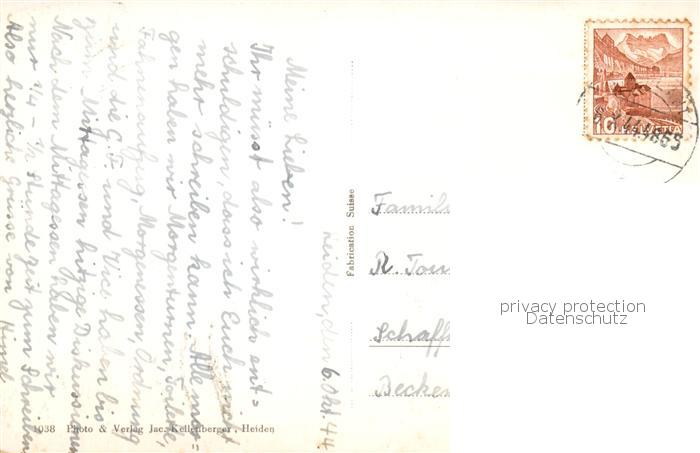 Heiden, den 6. Okt. 44
Meine Lieben!
Ihr müsst also wirklich ent=
schuldigen, dass ich Euch nicht
mehr schreiben kann. Alle mor=
gen haben wir Morgenturnen, Toilette,
Fahnenaufzug, Morgenessen, Ordnung
und die C.F. und Vice haben bis
zum Mittagessen hitzige Diskussionen
Nach dem Mittagessen haben wir
nur 1/4 - 1/2 Stunde Zeit zum Schreiben
Also herzliche Grüsse von
Fabrication Suisse
1038 Photo & Verlag Jac. Kellenberger, Heiden
Famil
R.
Schaff
Becke
10 HELVETIA
privacy protection
Datenschutz